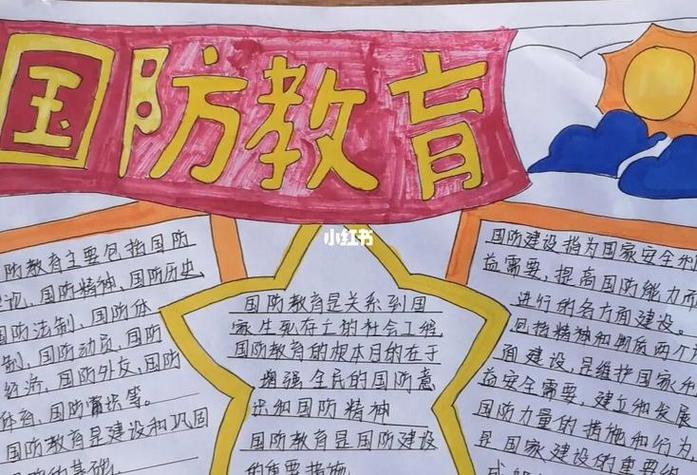 国防教育
小红书
防教育主要包括国防
、国防精神、国防历史、
国防法制、国防体
制、国防动员、国防
经济、国防外交、国防
体育、国防常识等。
国防教育是建设和巩固
国防的基础
国防教育是关系到国
家生死存亡的社会工程
国防教育的根本目的在于
增强全民的国防意
识和国防精神
国防教育是国防建设
的重要措施
国防建设指为国家安全利
益需要,提高国防能力而
进行的各方面建设。
包括精神和物质两个
面建设,是维护国家
益安全需要,建立和发展
国防力量的措施和行为
是国家建设的重要